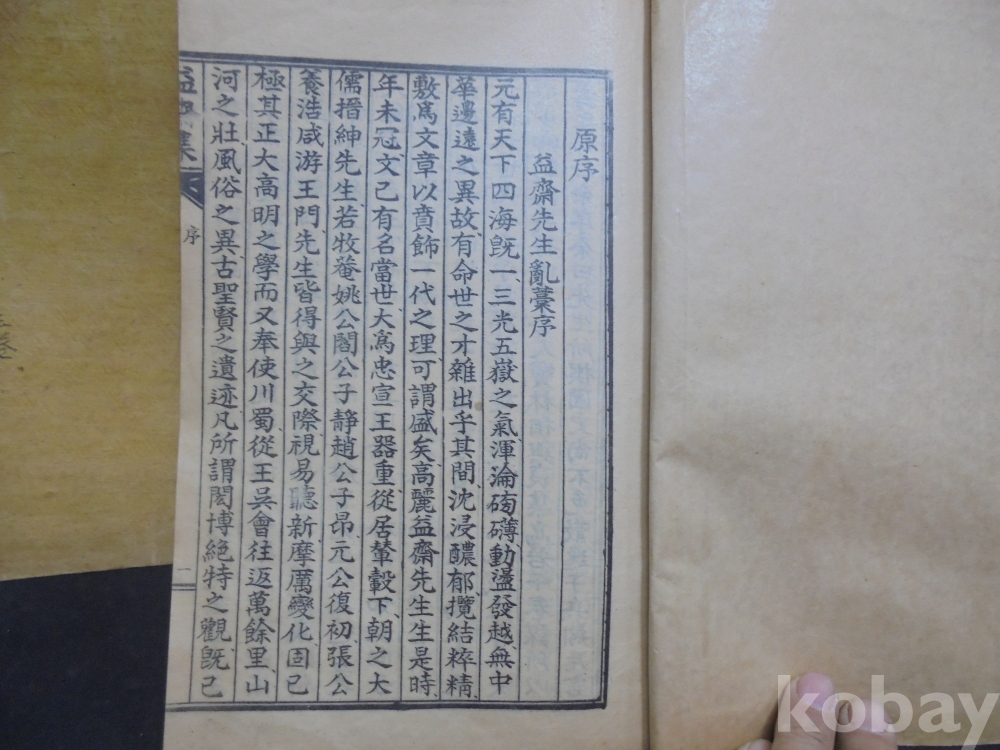 原序
益齋先生亂藁序
元有天下四海旣一三光五嶽之氣渾淪磅礴動盪發越無中
華邊遠之異故有命世之才雜出乎其間沈浸醲郁攬結粹精
敷爲文章以賁飾一代之理可謂盛矣高麗益齋先生生是時
年未冠文已有名當世大爲忠宣王器重從居輦轂下朝之大
儒搢紳先生若牧菴姚公閻公子靜趙公子昂元公復初張公
養浩咸游王門先生皆得與之交際視易聽新摩厲變化固已
極其正大高明之學而又奉使川蜀從王吳會往返萬餘里山
河之壯風俗之異古聖賢之遺迹凡所謂閎博絶特之觀旣已
益齋集
序
一
kobay